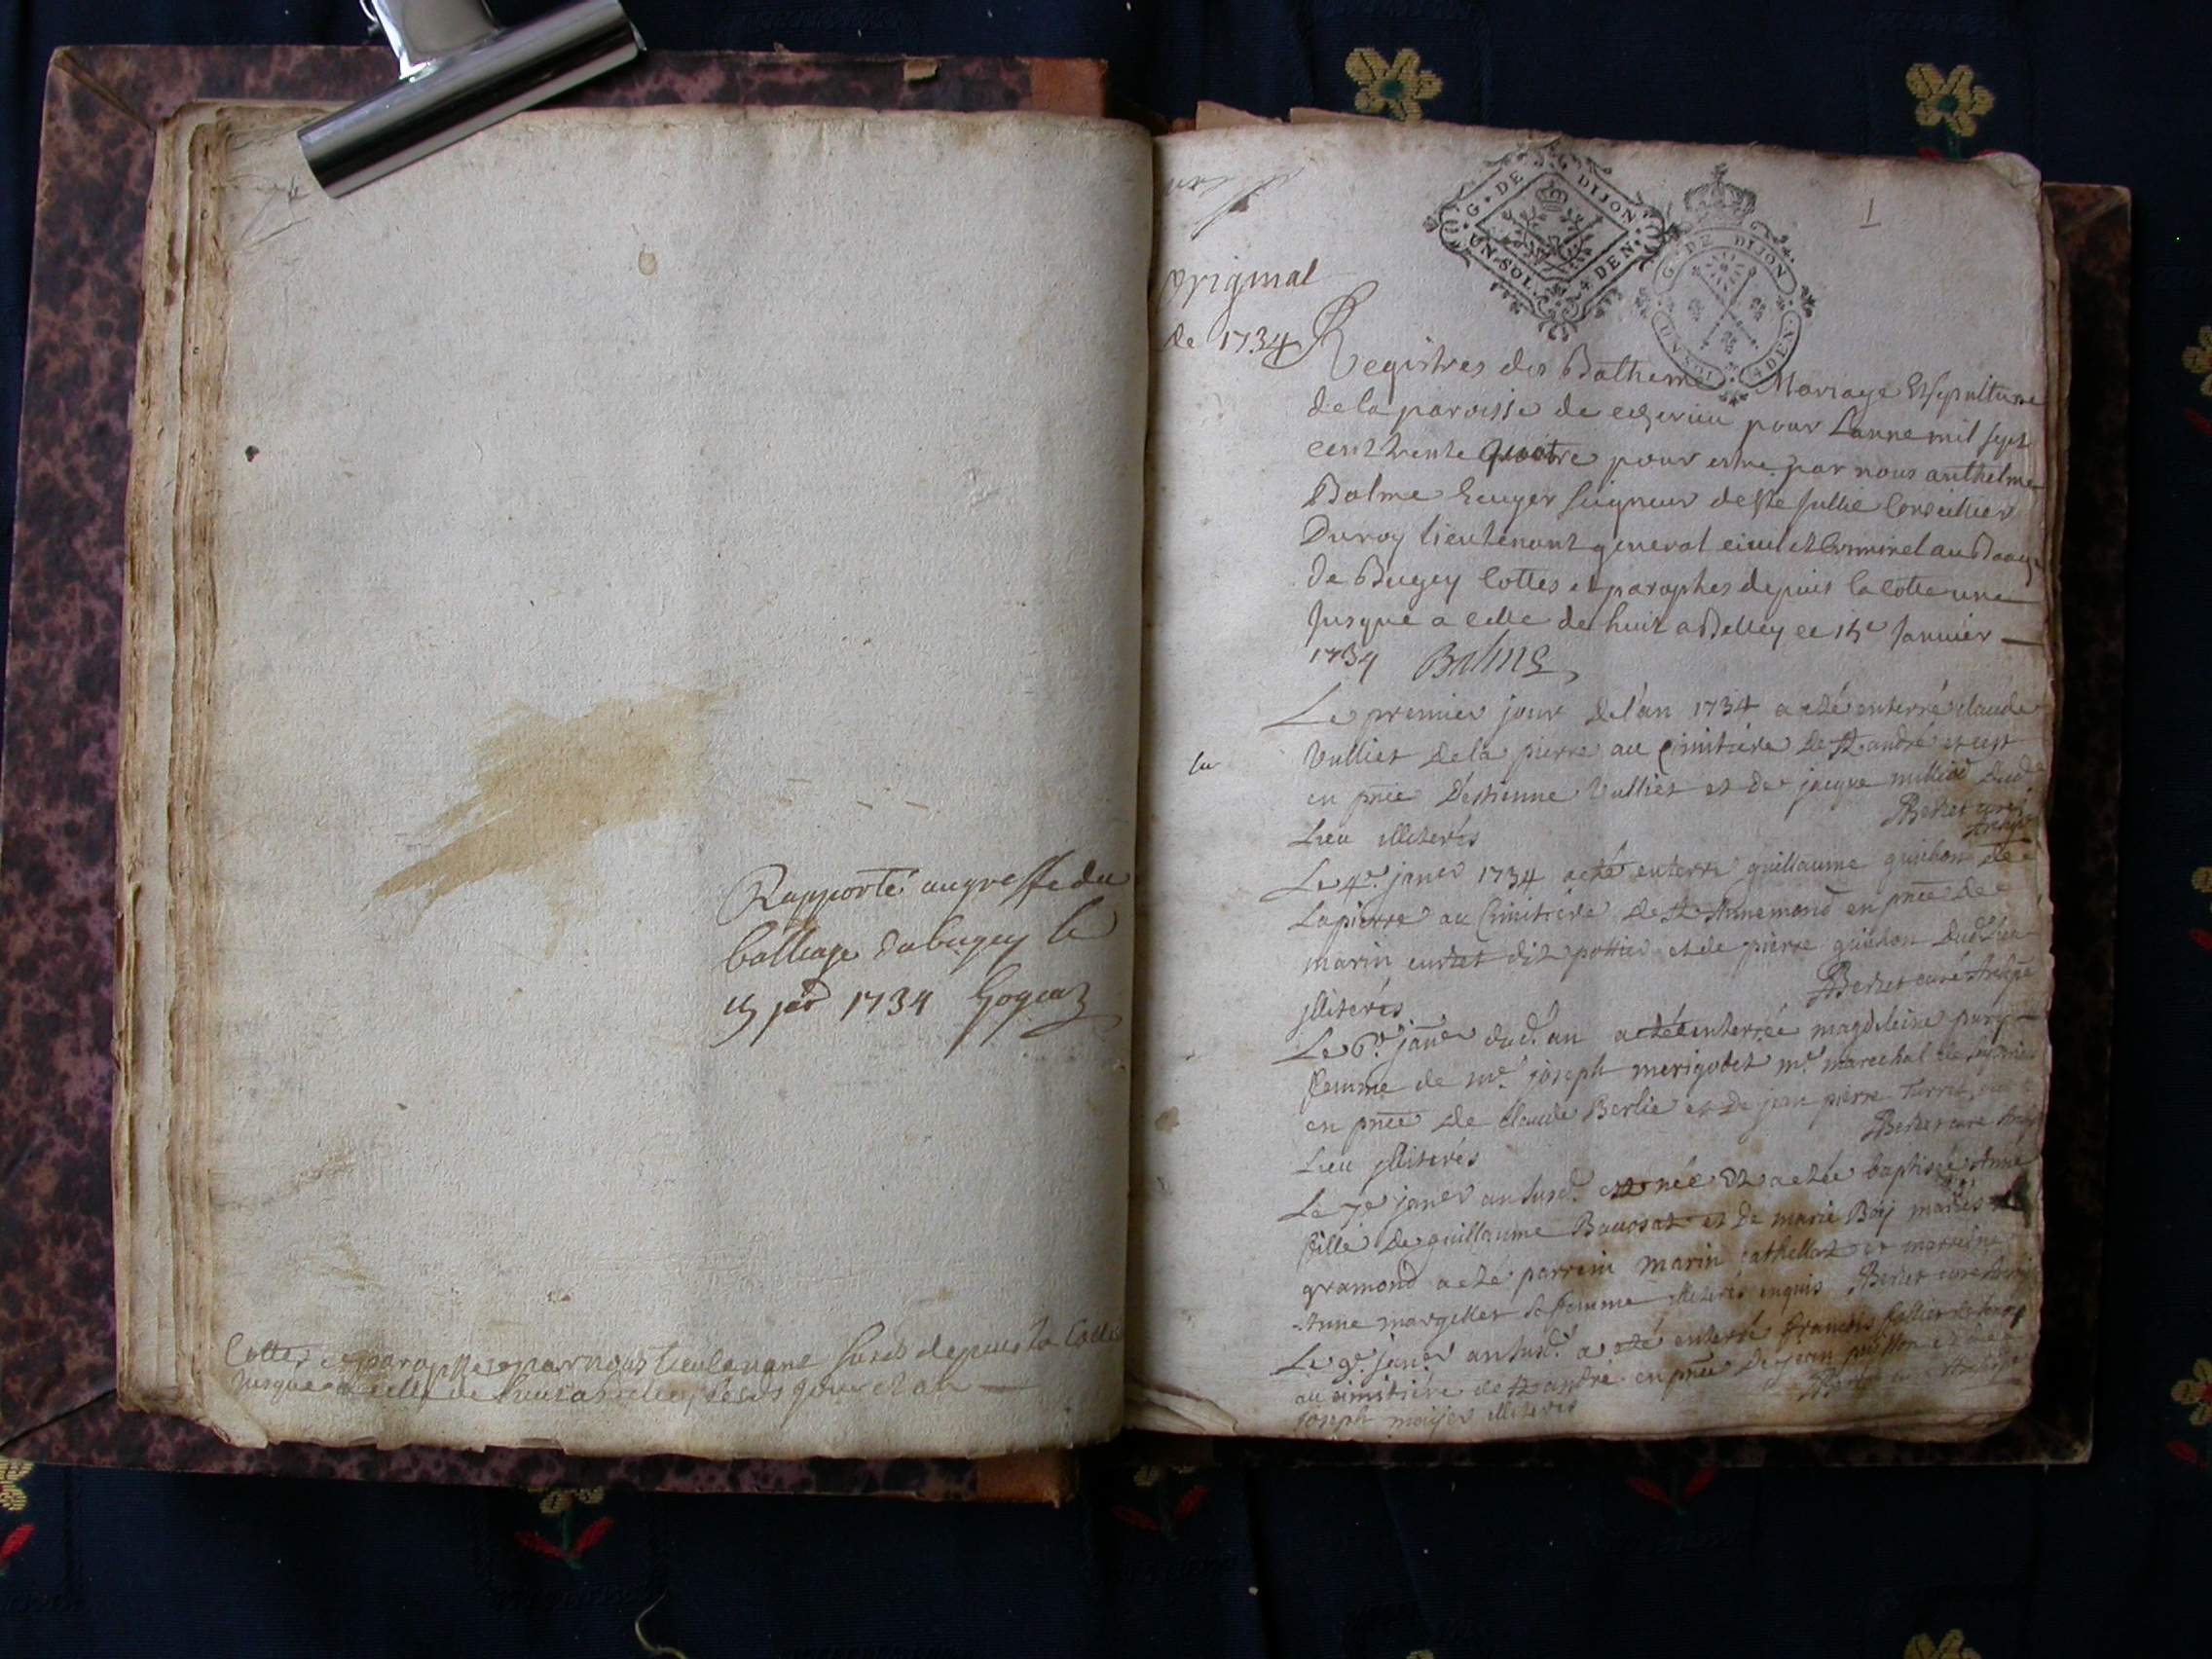 Rapporté au greffe du
balliage du bugey le
15 jer 1734
Cottes et paraphes par nous lieutenant depuis la Cotte
Jusque a celle de
original
de 1734
G. DE DIJON
UN SOL. 4 DEN.
G. DE DIJON
UN SOL. 4 DEN.
1
Registres des Batheme Mariage Et sepulture
de la paroisse de pour Lanne mil sept
cent trente quatre pour estre par nous anthelme
Balme Ecuyer seigneur de Ste Jullie Conseillier
Du roy lieutenant general civil et Criminel au Baage
de Bugey Cottes et paraphes depuis la cotte une
Jusque a celle de huit a Belley ce 15e Janvier
1734 Balme
Le premier jour de l'an 1734 a eté enterré claude
Vulliet de la pierre au cimitiere de St andré et cest
en pnce d'estienne Vulliet et de jacque millied dud
Lieu illiterés
curé
Le 4e janer 1734 a eté enterré guillaume guichon de
Lapierre au Cimitiere de St Annemond en pnce de
marin curtet dit pottier et de pierre guichon dud Lieu
illiterés
curé
Le 6e janer dud. an a eté enterrée magdeleine
femme de me joseph merigodet me marechal de
en pnce de claude Berlie et de jean pierre Turret
Lieu illiterés
curé
Le 7e janer an susd. est née Et a eté baptisée Anne
fille de guillaume Bavosat et de marie Boy mariés
gramond a eté parrein marin cathellat et marreine
Anne margellet sa femme illiterés enquis curé
Le 9e janer an susd. a eté enterré francois
au cimitiere de St andré en pnce de jean et de
joseph illiterés